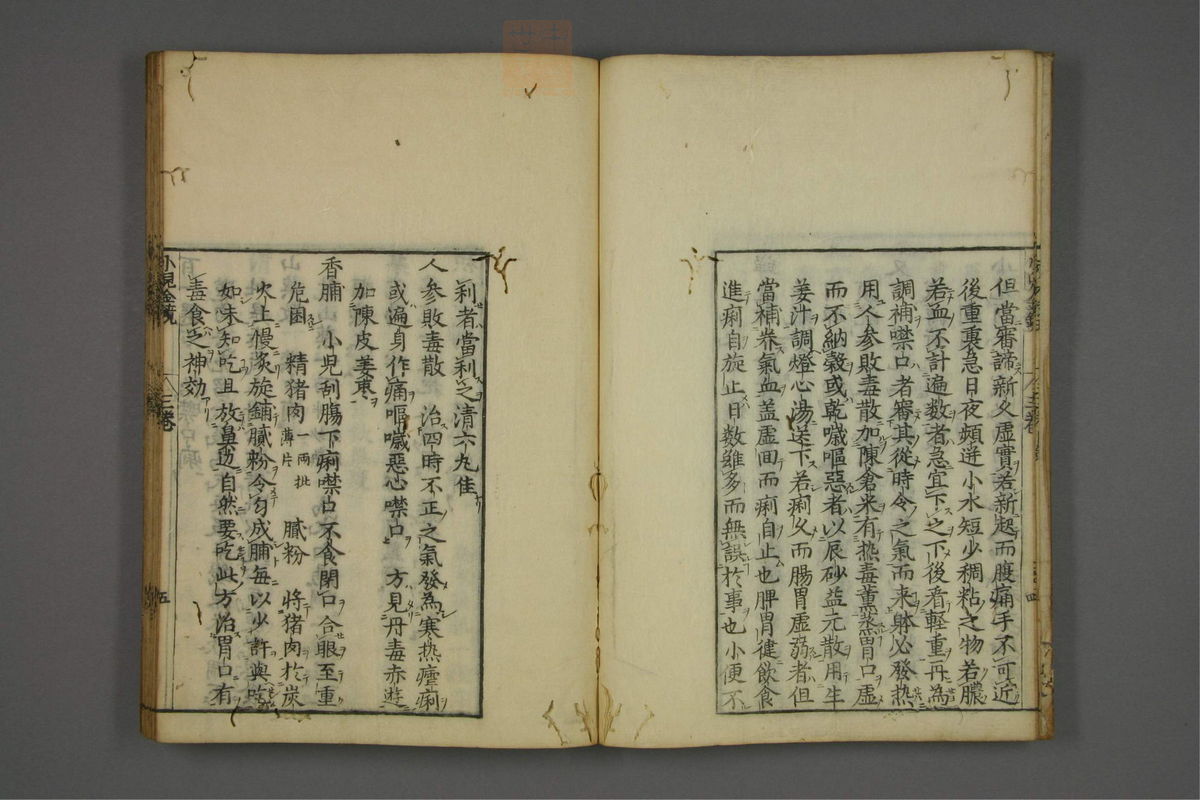 但當審諦新久虛實若新起而腹痛手不可近
後重裏急日夜頻迸小水短少稠粘之物若膿
若血不計遍数者急宜下之下後看輕重再為
調補噤口者審其從時令之氣而来躰必發热
用人参敗毒散加陳倉米有热毒薫蒸胃口虛
而不納穀或乾噦嘔惡者以辰砂益元散用生
姜汁調燈心湯送下若痢久而腸胃虛弱者但
當補养氣血盖虛囬而痢自止也脾胃健飲食
進痢自旋止日数雖多而無誤於事也小便不
利者當利之清六丸佳
人参敗毒散　治四時不正之氣發為寒热瘧痢
或遍身作痛嘔噦惡心噤口　方見丹毒赤遊
加陳皮姜棗
香脯　小児刮腸下痢噤口不食閉口合眼至重
危困　精猪肉一兩批薄片　膩粉　將猪肉於炭
火上慢炙旋鋪膩粉令匀成脯每以少許與吃
如味知吃且放鼻邊自然要吃此方治胃口有
毒食之神効
小兒金鏡
三卷
五